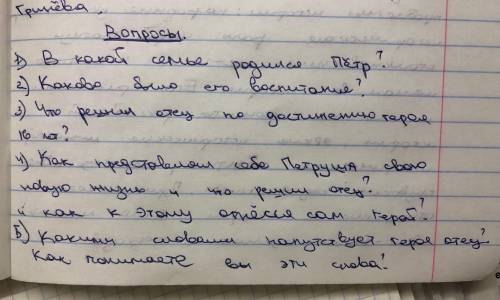 Гринёва.
Вопросы.
1) В какой семье родился Пётр?
2) Каково было его воспитание?
3) Что решил отец по достижению героя
16 лет?
4) Как представлял себе Петруша свою
новую жизнь и что решил отец?
и как к этому отнёсся сам герой?
5) Какими словами напутствует героя отец?
Как понимаете вы эти слова?